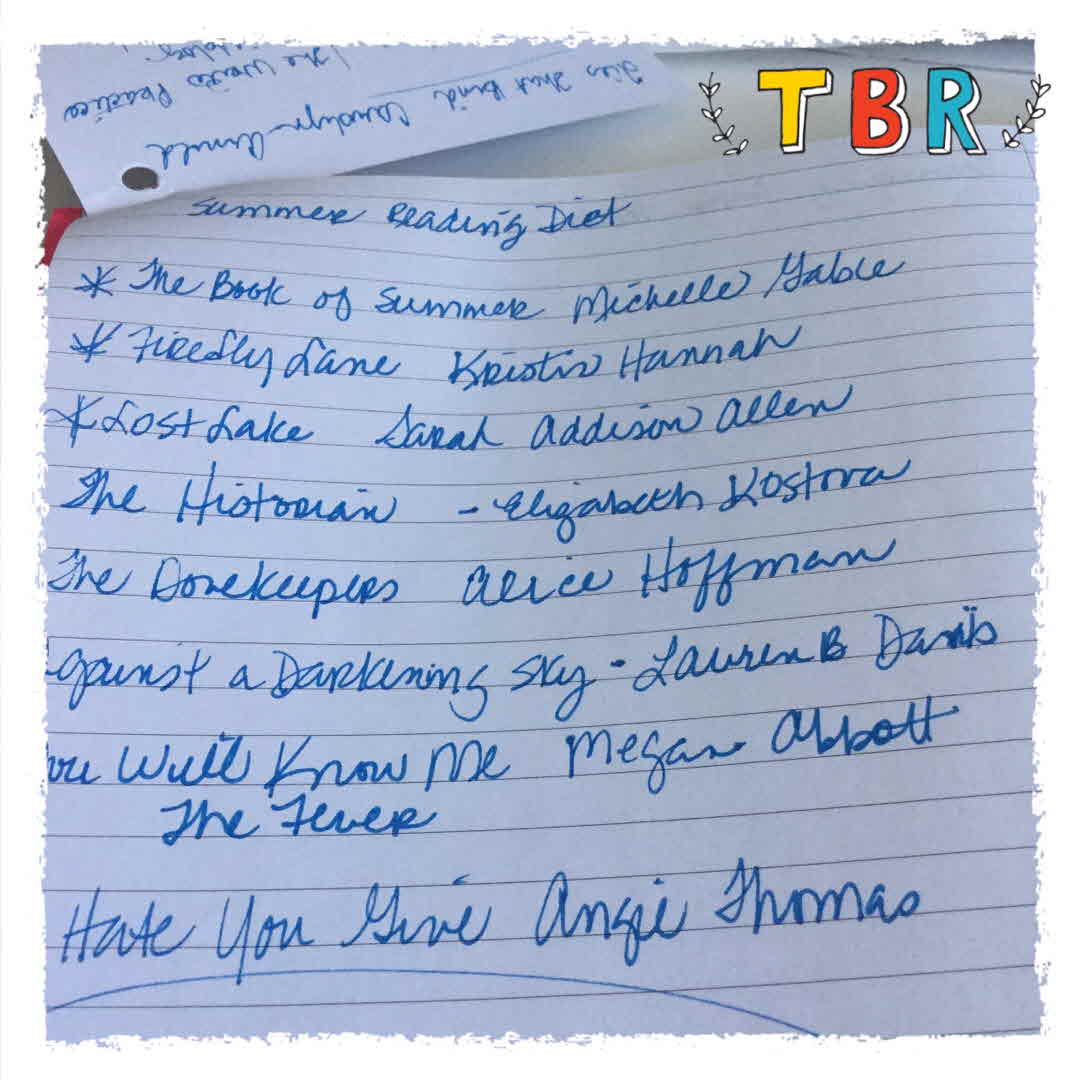 TBR
The Writer's Practice
Ties That Bind Carolyn Arnold
Summer Reading Diet
* The Book of Summer Michelle Gable
* Firefly Lane Kristin Hannah
* Lost Lake Sarah Addison Allen
The Historian - Elizabeth Kostova
The Dovekeepers Alice Hoffman
Against a Darkening Sky - Lauren B Davis
You Will Know Me Megan Abbott
The Fever
Hate You Give Angie Thomas